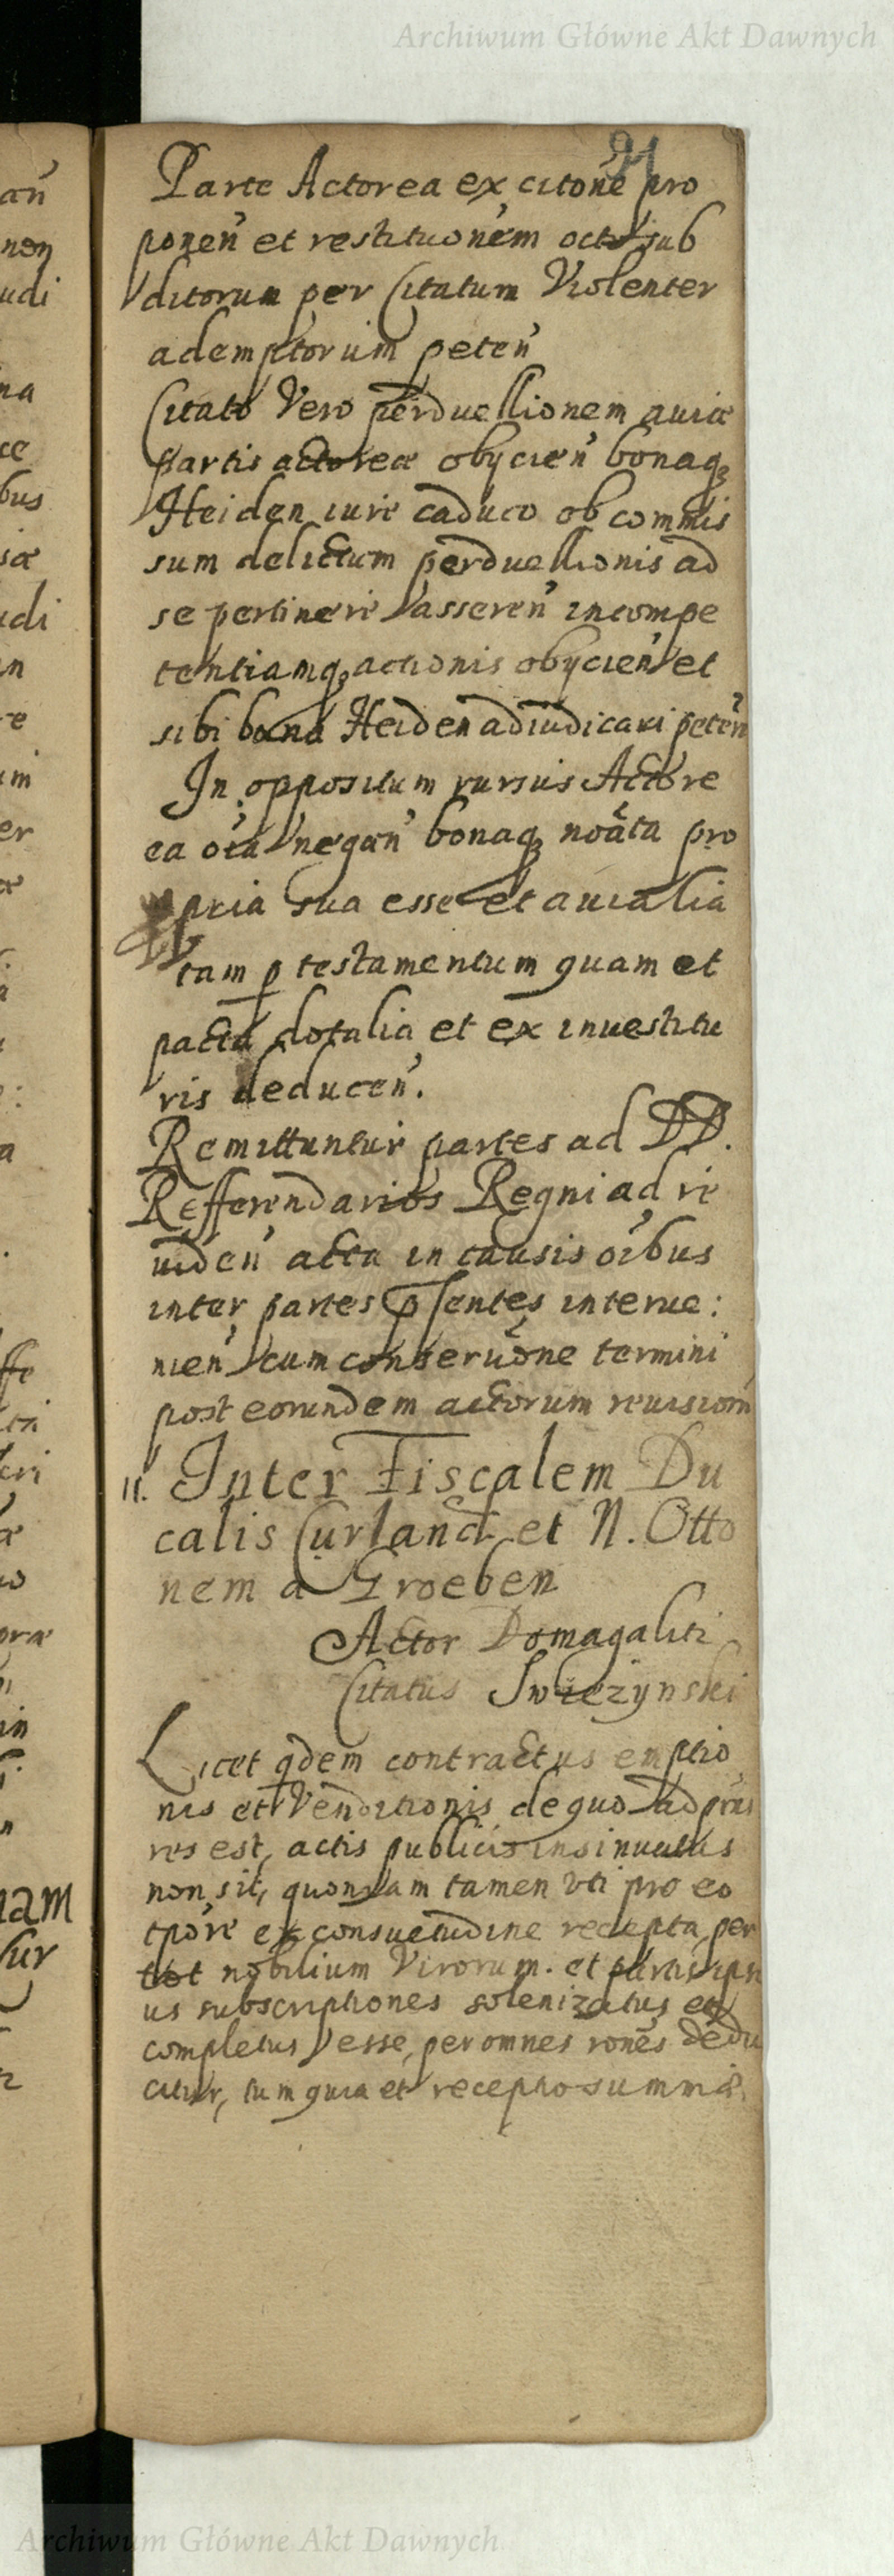 Archiwum Główne Akt Dawnych
Parte Actorea ex citone pro
ponen et restitutionem octo sub
ditorum per Citatum Violenter
ademptorum peten
Citato Vero perduellionem auiæ
partis actoreæ obycien bonaq
Heiden iure caduco ob commis
sum delictum perduellionis ad
se pertinere asseren incompe
tentiamq actionis obycien et
sibi bona Heiden adiudicari peten
In oppositum rursus Actore
ea oia negan bonaq noata pro
pria sua esse et auialia
tam p testamentum quam et
pacta dotalia et ex inuestitu
ris deducen.
Remittuntur partes ad DD.
Refferendarios Regni ad re
uiden acta in causis oibus
inter partes psentes interue:
nien cum conseruone termini
post eorundem actorum reuisionem
11. Inter Fiscalem Du
calis Curland et N. Otto
nem a Groeben
Actor Domagaliti
Citatus Swiezynski
Licet qdem contractus emptio
nis et Venditionis de quo ad prns
res est, actis publicis insinuatus
non sit, quoniam tamen vti pro eo
tpore ex consuetudine recepta per
tot nobilium Virorum. et partis ips
us subscriptiones solenizatus et
completus esse, per omnes rones dedu
citur, tum quia et receptio summæ
an
non
udi
na
ce
bus
iæ
udi
in
re
um
er
Archiwum Głównego Akt Dawnych